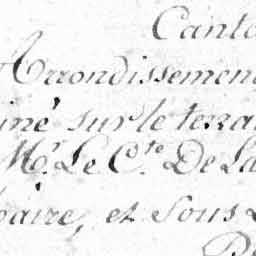 Canto
Arrondissemen
iné sur le terrai
Mr. Le Cte. De La
aire, et sous